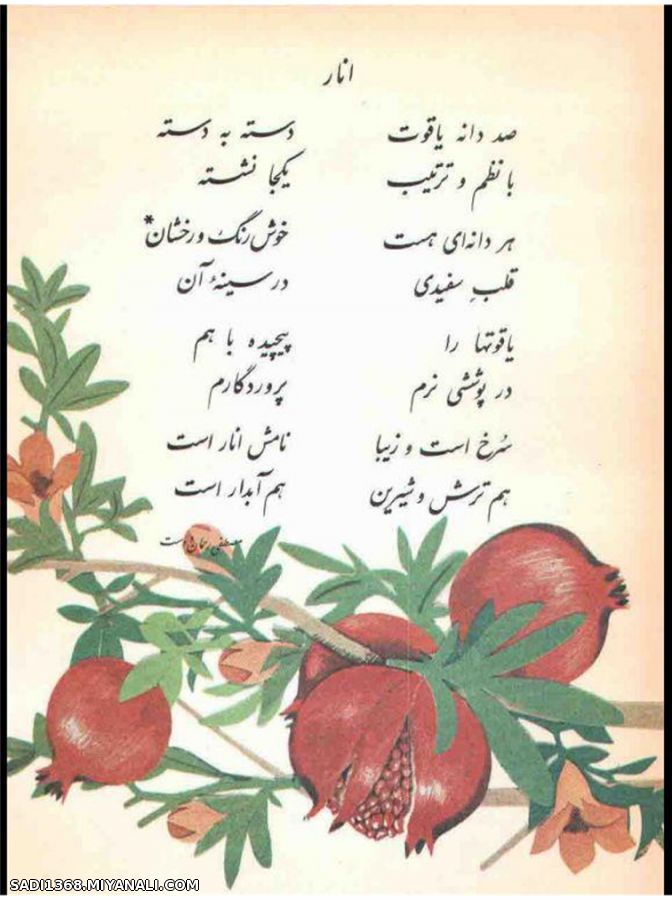 انار
صد دانه یاقوت دسته به دسته
با نظم و ترتیب یکجا نشسته
هر دانه‌ای هست خوش رنگ و رخشان*
قلبِ سفیدی در سینهٔ آن
یاقوتها را پیچیده با هم
در پوششی نرم پروردگارم
سُرخ است و زیبا نامش انار است
هم ترش و شیرین هم آبدار است
مصطفی رحماندوست
SADI1368.MIYANALI.COM